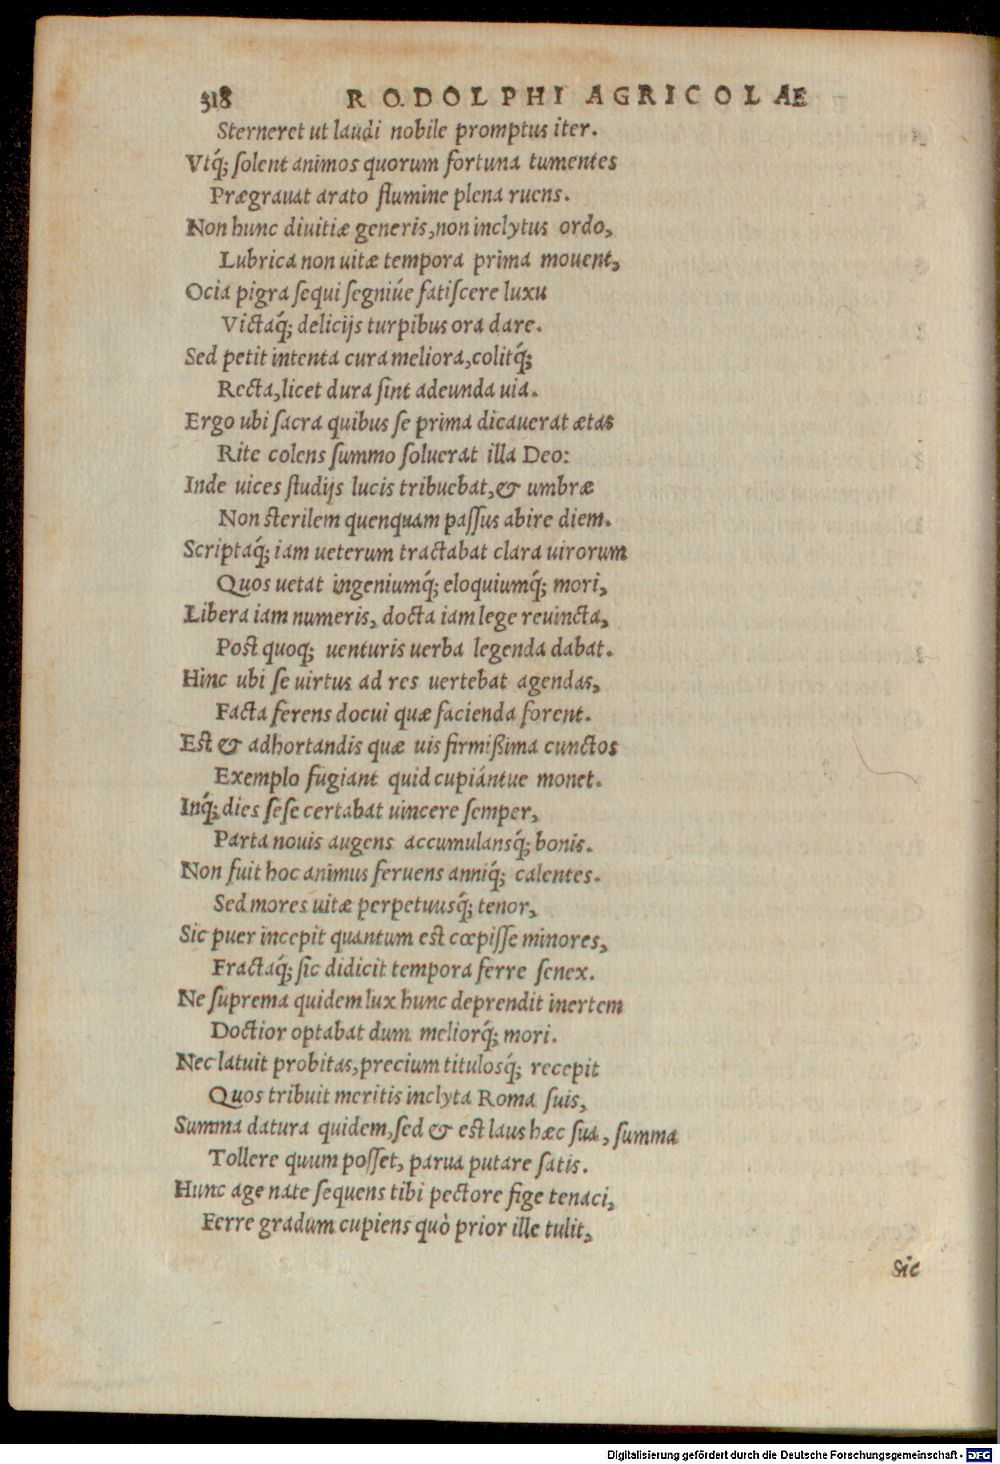 318 RODOLPHI AGRICOLAE
Sterneret ut laudi nobile promptus iter.
Vtq́; ſolent animos quorum fortuna tumentes
Prægrauat arato flumine plena ruens.
Non hunc diuitiæ generis, non inclytus ordo,
Lubrica non uitæ tempora prima mouent,
Ocia pigra ſequi ſegniúe fatiſcere luxu
Victaq́; delicijs turpibus ora dare.
Sed petit intenta cura meliora, colitq́;
Recta, licet dura ſint adeunda uia.
Ergo ubi ſacra quibus ſe prima dicauerat ætas
Rite colens ſummo ſoluerat illa Deo:
Inde uices ſtudijs lucis tribuebat, & umbræ
Non ſterilem quenquam paſſus abire diem.
Scriptaq́; iam ueterum tractabat clara uirorum
Quos uetat ingeniumq́; eloquiumq́; mori,
Libera iam numeris, docta iam lege reuincta,
Poſt quoq; uenturis uerba legenda dabat.
Hinc ubi ſe uirtus ad res uertebat agendas,
Facta ferens docui quæ facienda forent.
Eſt & adhortandis quæ uis firmißima cunctos
Exemplo fugiant quid cupiántue monet.
Inq́; dies ſeſe certabat uincere ſemper,
Parta nouis augens accumulansq́; bonis.
Non fuit hoc animus feruens anniq́; calentes.
Sed mores uitæ perpetuusq́; tenor,
Sic puer incepit quantum eſt cœpiſſe minores,
Fractaq́; ſic didicit tempora ferre ſenex.
Ne ſuprema quidem lux hunc deprendit inertem
Doctior optabat dum meliorq́; mori.
Nec latuit probitas, precium titulosq́; recepit
Quos tribuit meritis inclyta Roma ſuis,
Summa datura quidem, ſed & eſt laus hæc ſua, ſumma
Tollere quum poſſet, parua putare ſatis.
Hunc age nate ſequens tibi pectore fige tenaci,
Ferre gradum cupiens quò prior ille tulit,
Sic
Digitalisierung gefördert durch die Deutsche Forschungsgemeinschaft - DFG